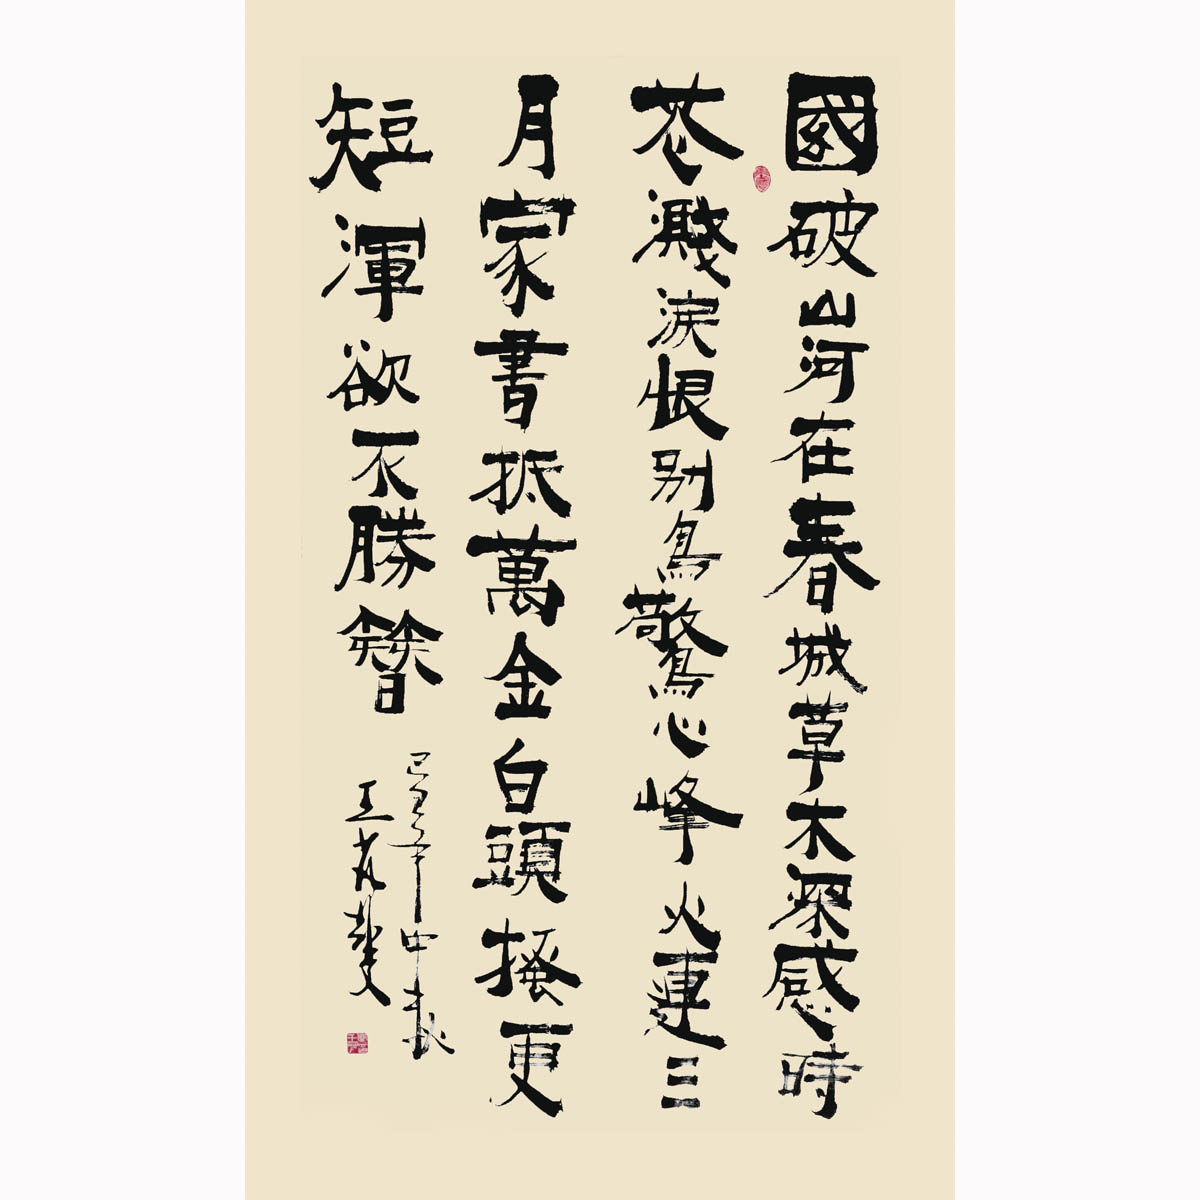 國破山河在春城草木深感時
花濺淚恨别鳥驚心峰火連三
月家書抵萬金白頭搔更
短渾欲不勝簪
己丑年中秋
王